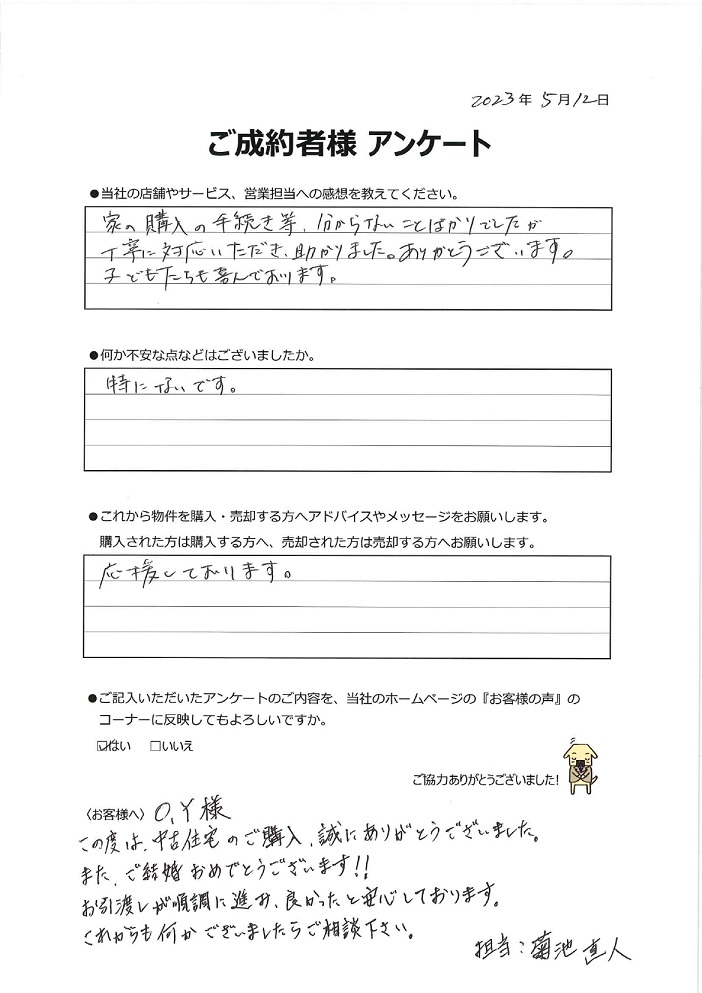 2023年 5月12日
ご成約者様 アンケート
●当社の店舗やサービス、営業担当への感想を教えてください。
家の購入の手続き等、分からないことばかりでしたが
丁寧に対応いただき、助かりました。ありがとうございます。
子どもたちも喜んでおります。
●何か不安な点などはございましたか。
特にないです。
●これから物件を購入・売却する方へアドバイスやメッセージをお願いします。
購入された方は購入する方へ、売却された方は売却する方へお願いします。
応援しております。
●ご記入いただいたアンケートのご内容を、当社のホームページの『お客様の声』の
コーナーに反映してもよろしいですか。
☑はい □いいえ
ご協力ありがとうございました!
〈お客様へ〉 O,Y様
この度は、中古住宅のご購入、誠にありがとうございました。
また、ご結婚おめでとうございます!!
お引渡しが順調に進み、良かったと安心しております。
これからも何かございましたらご相談下さい。
担当:菊池 直人